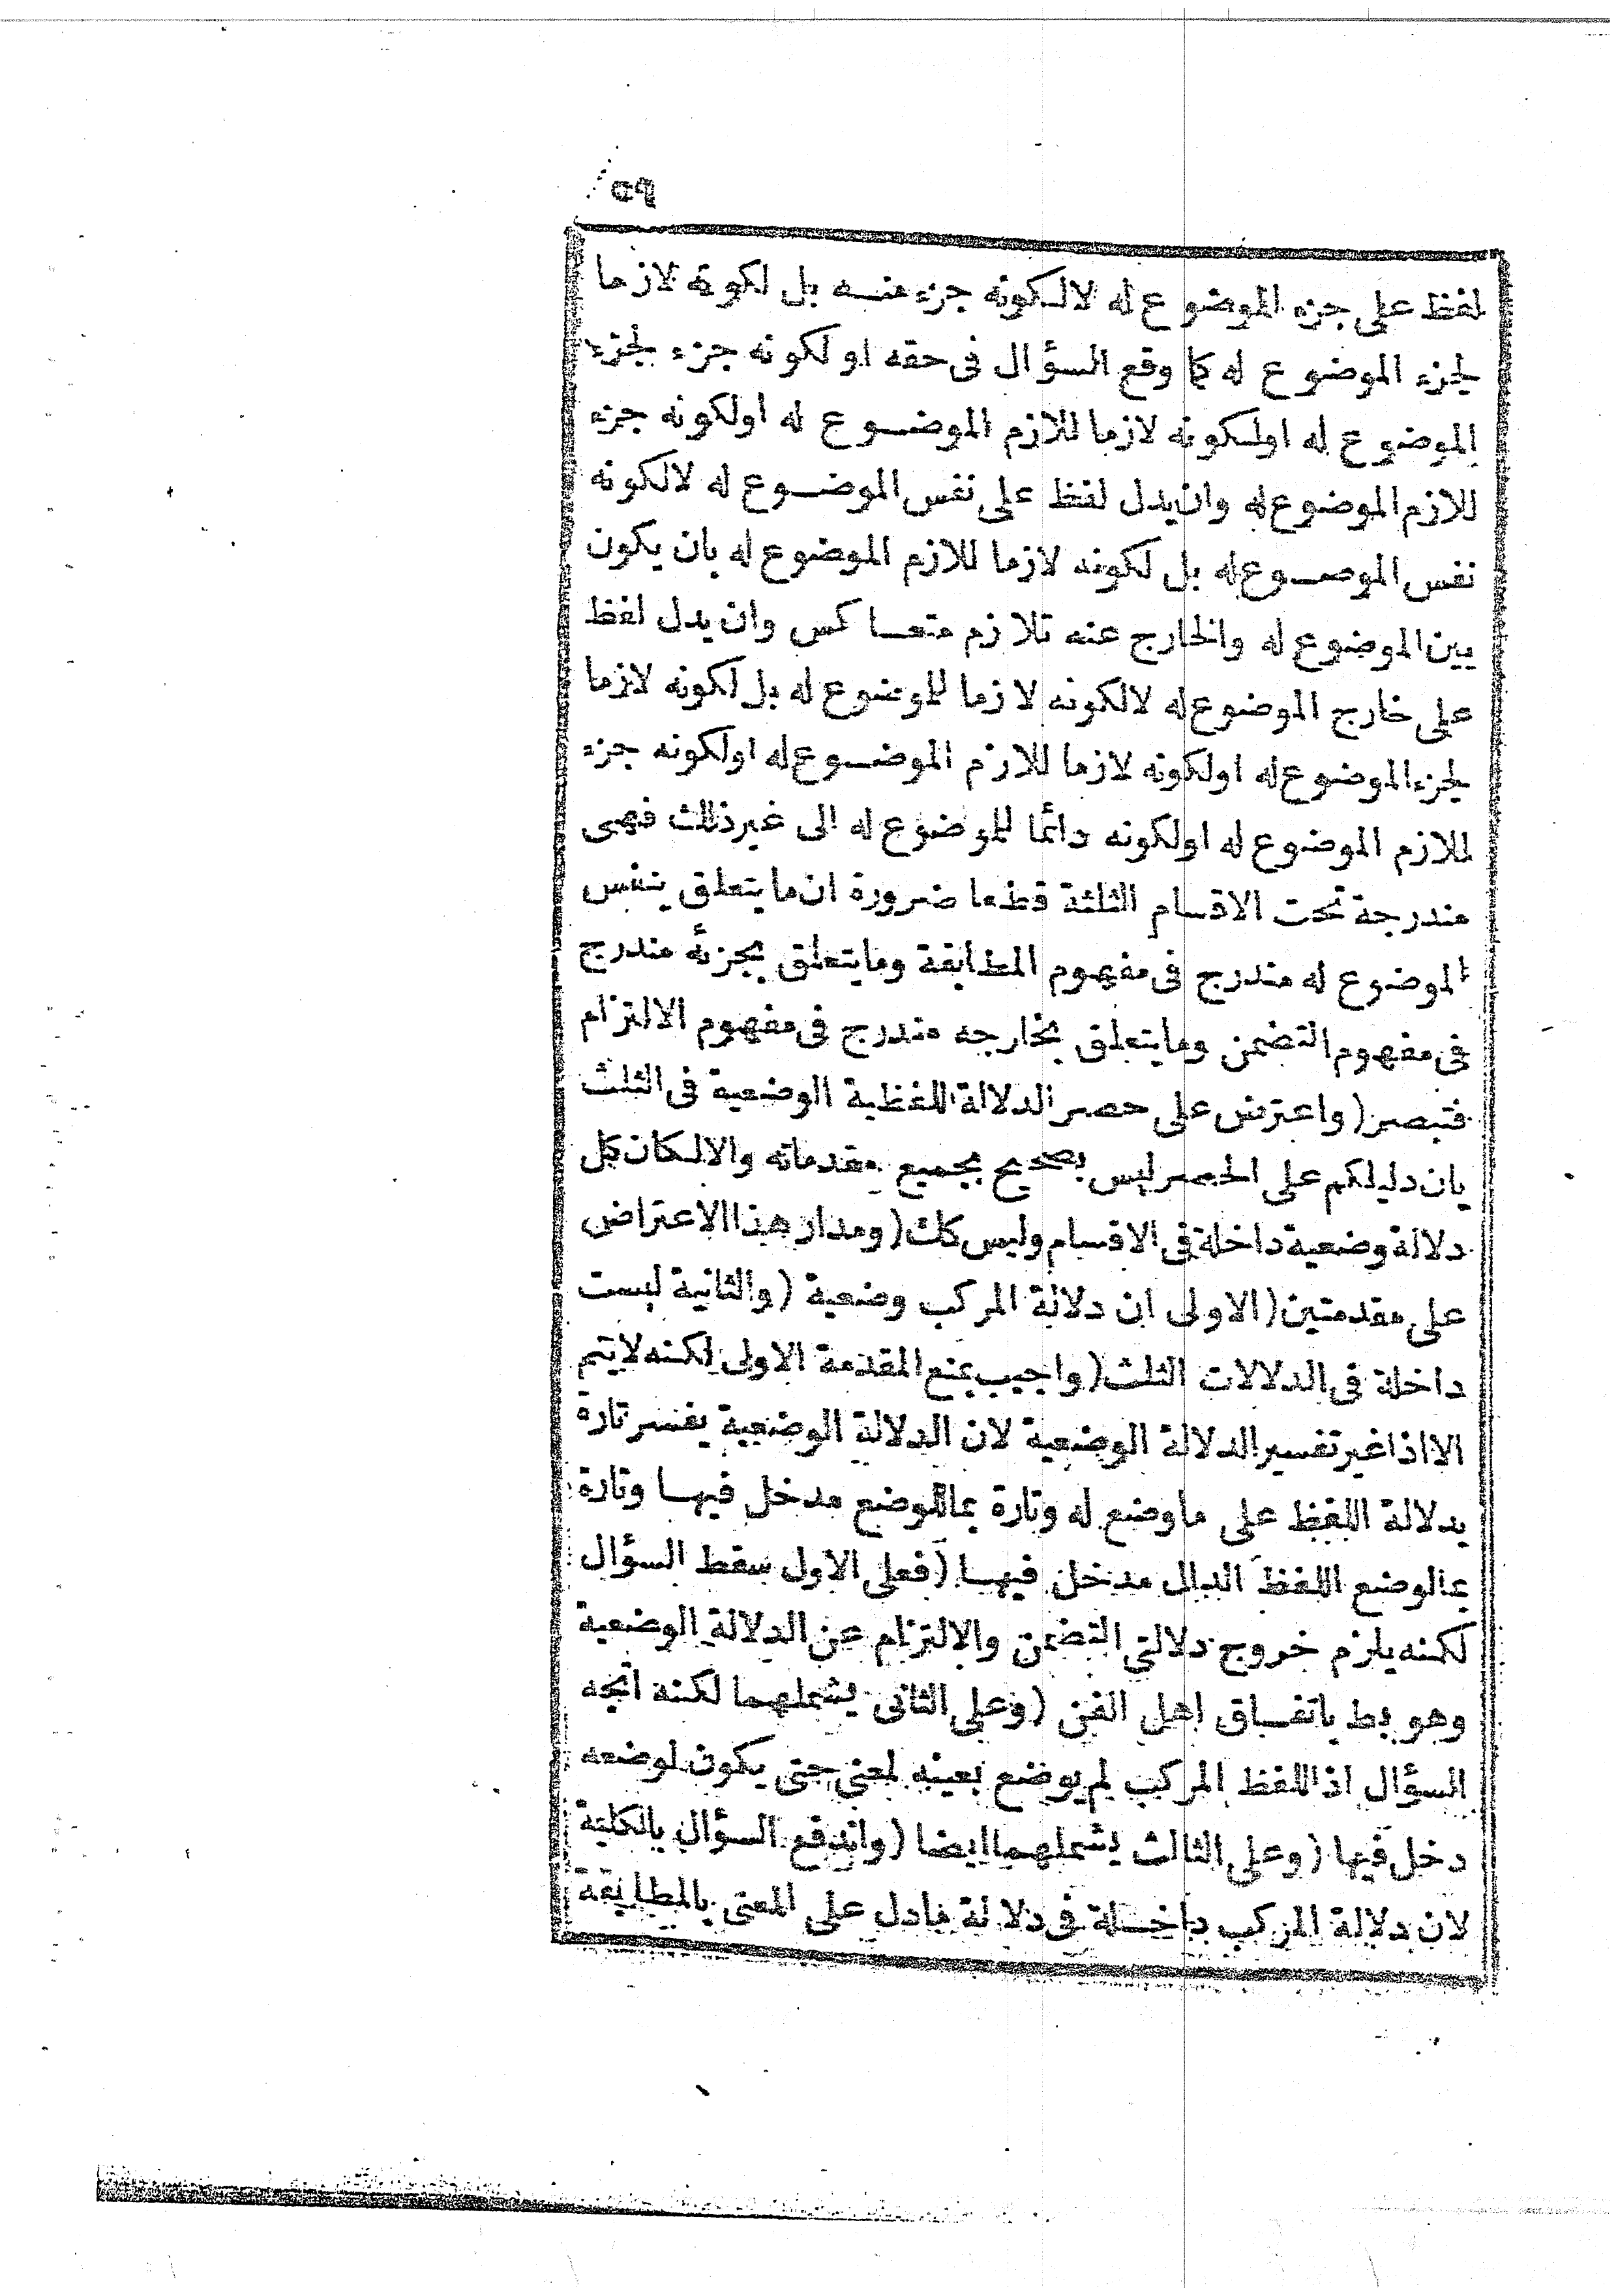 ٥٩
لفظ على جزء الموضوع له لا لكونه جزء منه بل لكونه لازما
لجزء الموضوع له كما وقع السؤال فى حقه او لكونه جزء لجزء
الموضوع له اولكونه لازما للازم الموضوع له اولكونه جزء
للازم الموضوع له وان يدل لفظ على نفس الموضوع له لالكونه
نفس الموضوع له بل لكونه لازما للازم الموضوع له بان يكون
بين الموضوع له والخارج عنه تلازم متعاكس وان يدل لفظ
على خارج الموضوع له لالكونه لازما للموضوع له بل لكونه لازما
لجزء الموضوع له اولكونه لازما للازم الموضوع له اولكونه جزء
للازم الموضوع له اولكونه دائما للموضوع له الى غير ذلك فهى
مندرجة تحت الاقسام الثلثة قطعا ضرورة ان ما يتعلق بنفس
الموضوع له مندرج فى مفهوم المطابقة وما يتعلق بجزئه مندرج
فى مفهوم التضمن وما يتعلق بخارجه مندرج فى مفهوم الالتزام
فتبصر (واعترض على حصر الدلالة اللفظية الوضعية فى الثلث
بان دليلكم على الحصر ليس بصحيح بجميع مقدماته والالكان كل
دلالة وضعية داخلة فى الاقسام وليس كك (ومدار هذا الاعتراض
على مقدمتين (الاولى ان دلالة المركب وضعية (والثانية ليست
داخلة فى الدلالات الثلث (واجيب بمنع المقدمة الاولى لكنه لايتم
الا اذا غير تفسير الدلالة الوضعية لان الدلالة الوضعية يفسر تارة
بدلالة اللفظ على ما وضع له وتارة بماللوضع مدخل فيها وتارة
بمالوضع اللفظ الدال مدخل فيها (فعلى الاول سقط السؤال
لكنه يلزم خروج دلالتى التضمن والالتزام عن الدلالة الوضعية
وهو بط باتفاق اهل الفن (وعلى الثانى يشملهما لكنه اتجه
السؤال اذ اللفظ المركب لم يوضع بعينه لمعنى حتى يكون لوضعه
دخل فيها (وعلى الثالث يشملهما ايضا (واندفع السؤال بالكلية
لان دلالة المركب داخلة فى دلالة مادل على المعنى بالمطابقة